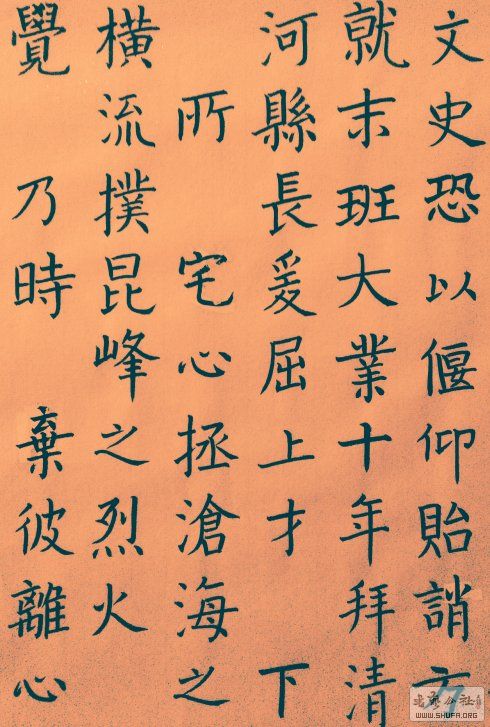 文史恐以偃仰貽誚方
就末班大業十年拜清
河縣長爰屈上才 下
所 宅心拯滄海之
橫流撲昆峰之烈火
覺 乃時 棄彼離心
WWW.SHUFA.ORG